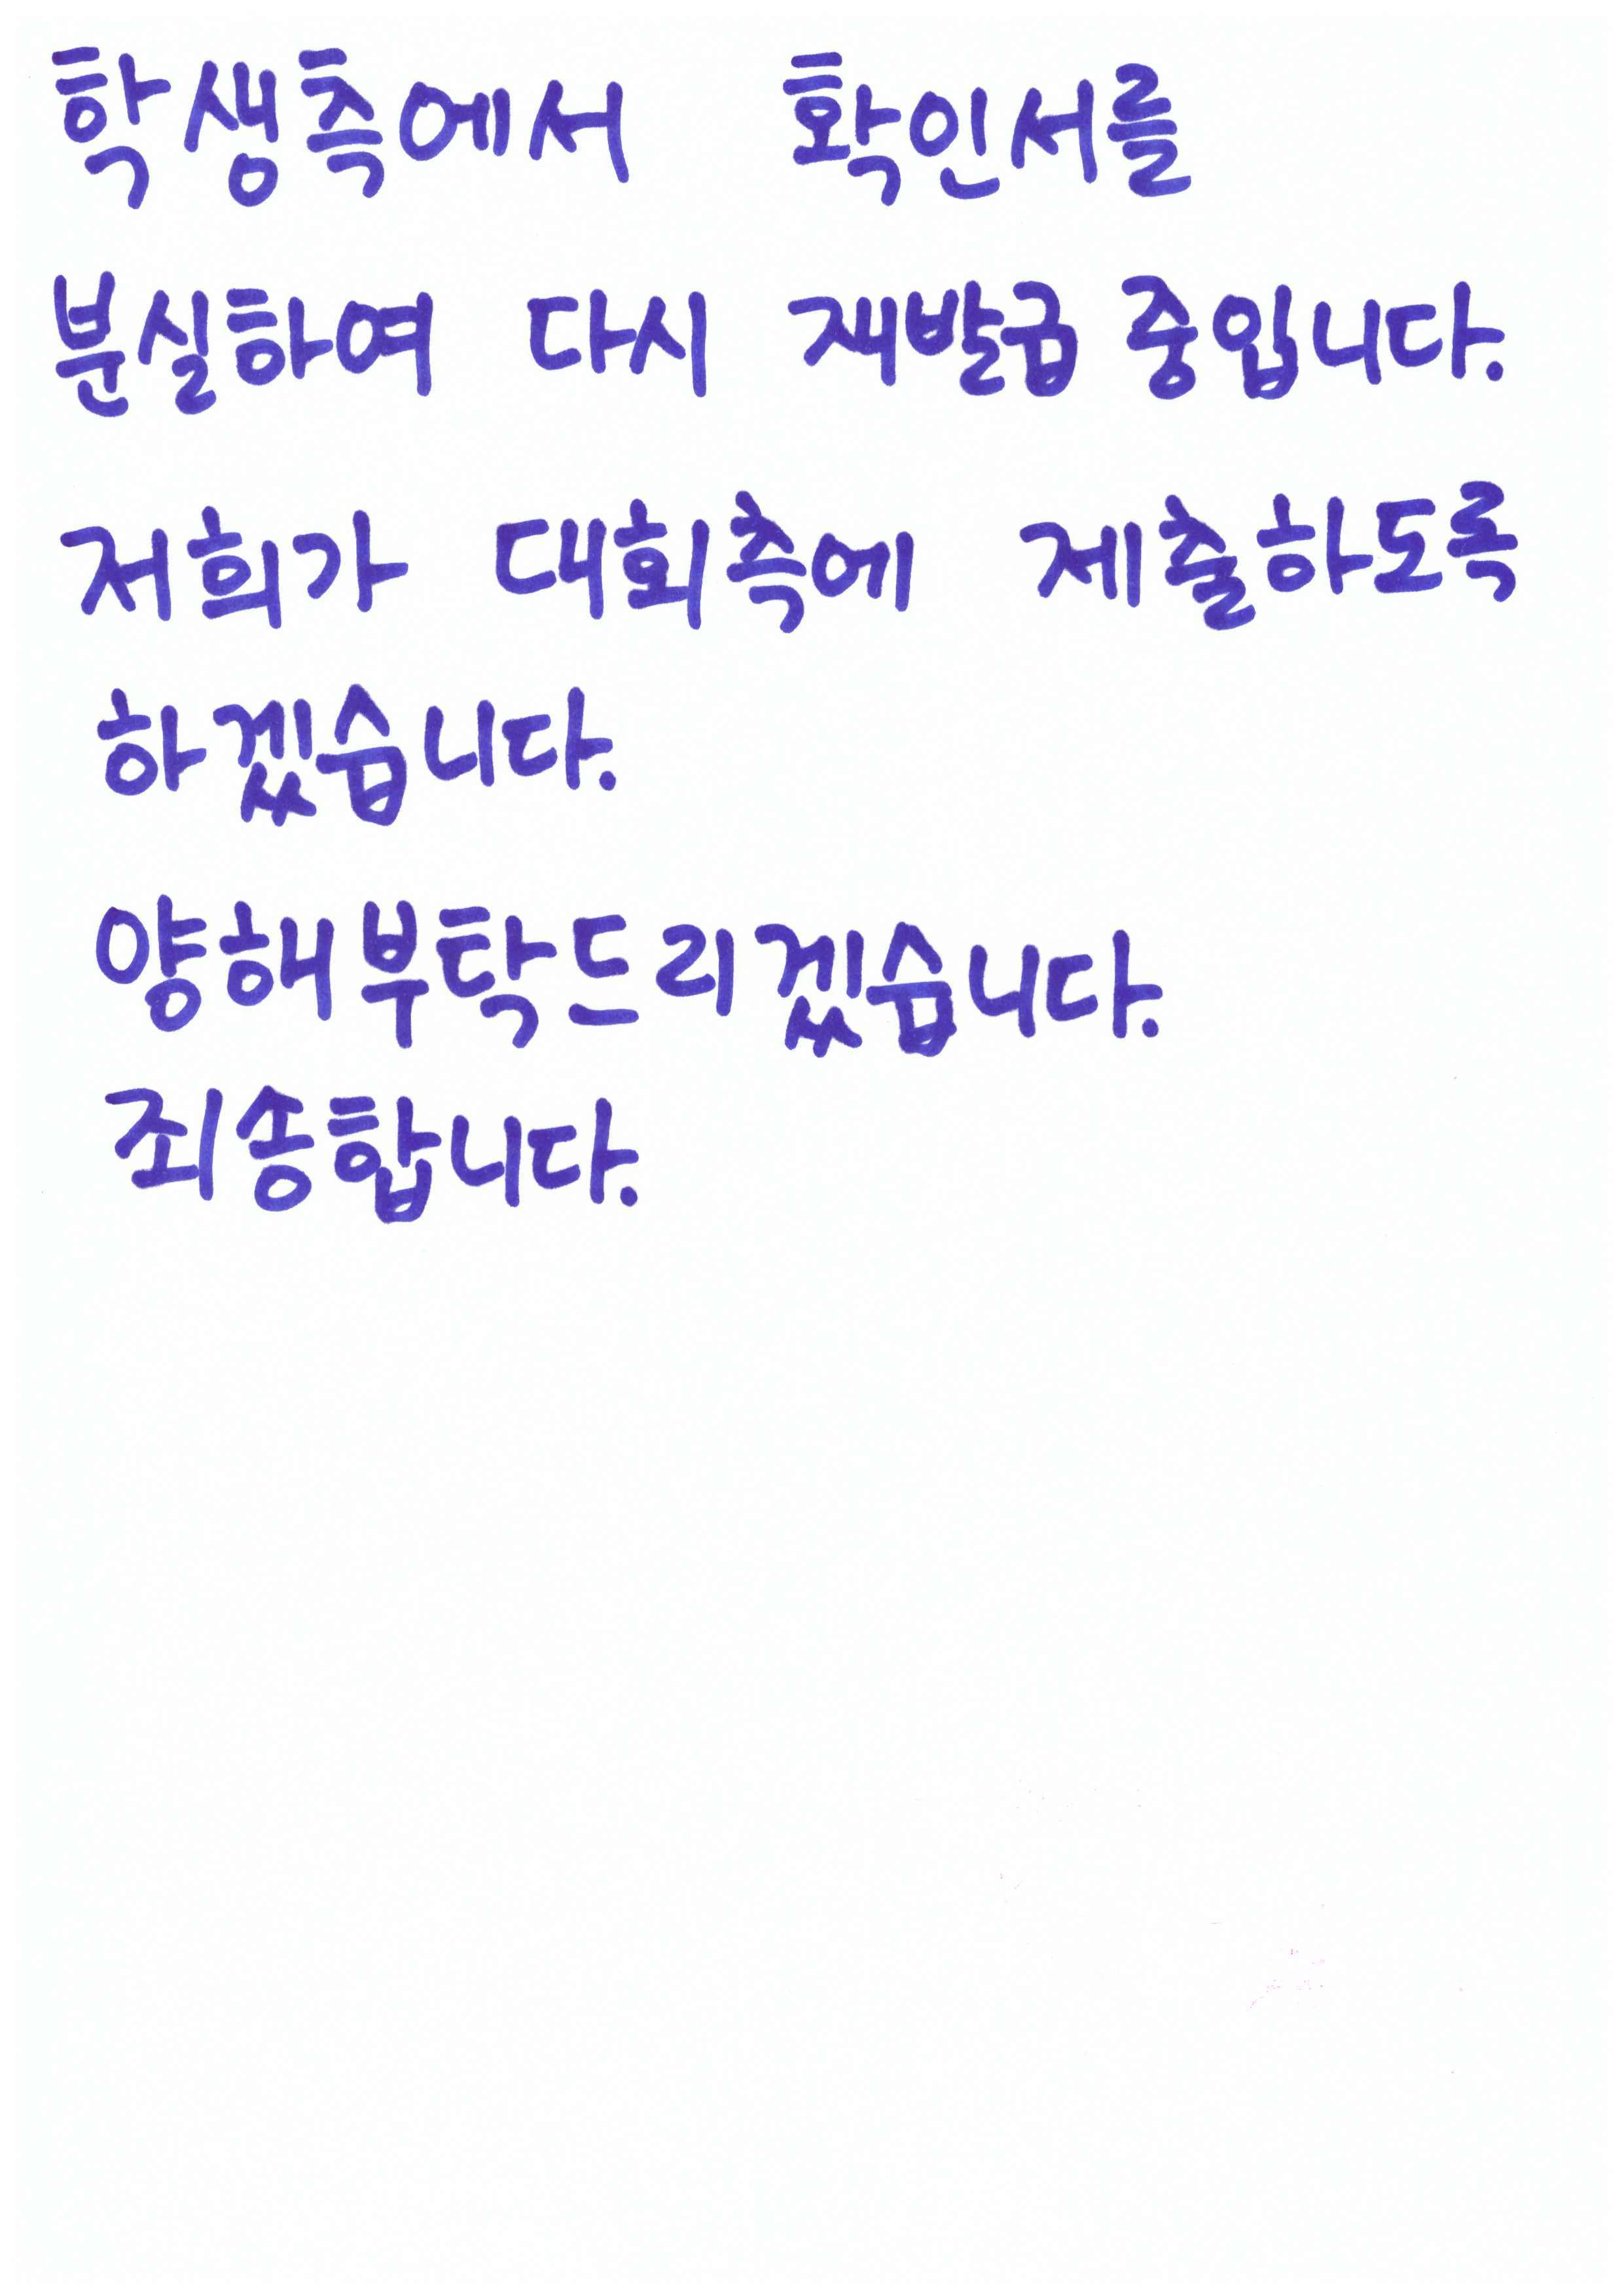 학생측에서 확인서를
분실하여 다시 재발급 중입니다.
저희가 대회측에 제출하도록
하겠습니다.
양해부탁드리겠습니다.
죄송합니다.